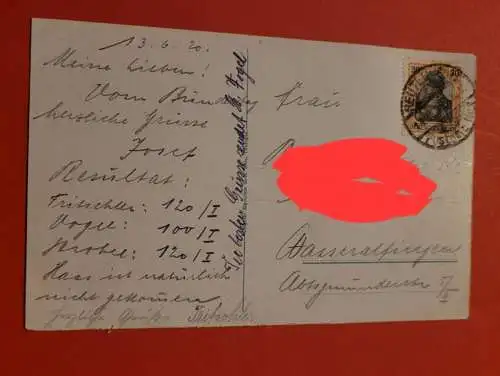 13.6.20.
Meine Lieben!
Vom Bundes
herzliche Grüsse
Josef
Resultat:
Fritschler: 120/I
Vogel: 100/I
Strobel: 120/I
Haas ist natürlich
nicht gekommen
Herzliche Grüße
Die besten Grüsse sendet H. Vogel
Frau
Wasseralfingen
Abtsgmünderstr